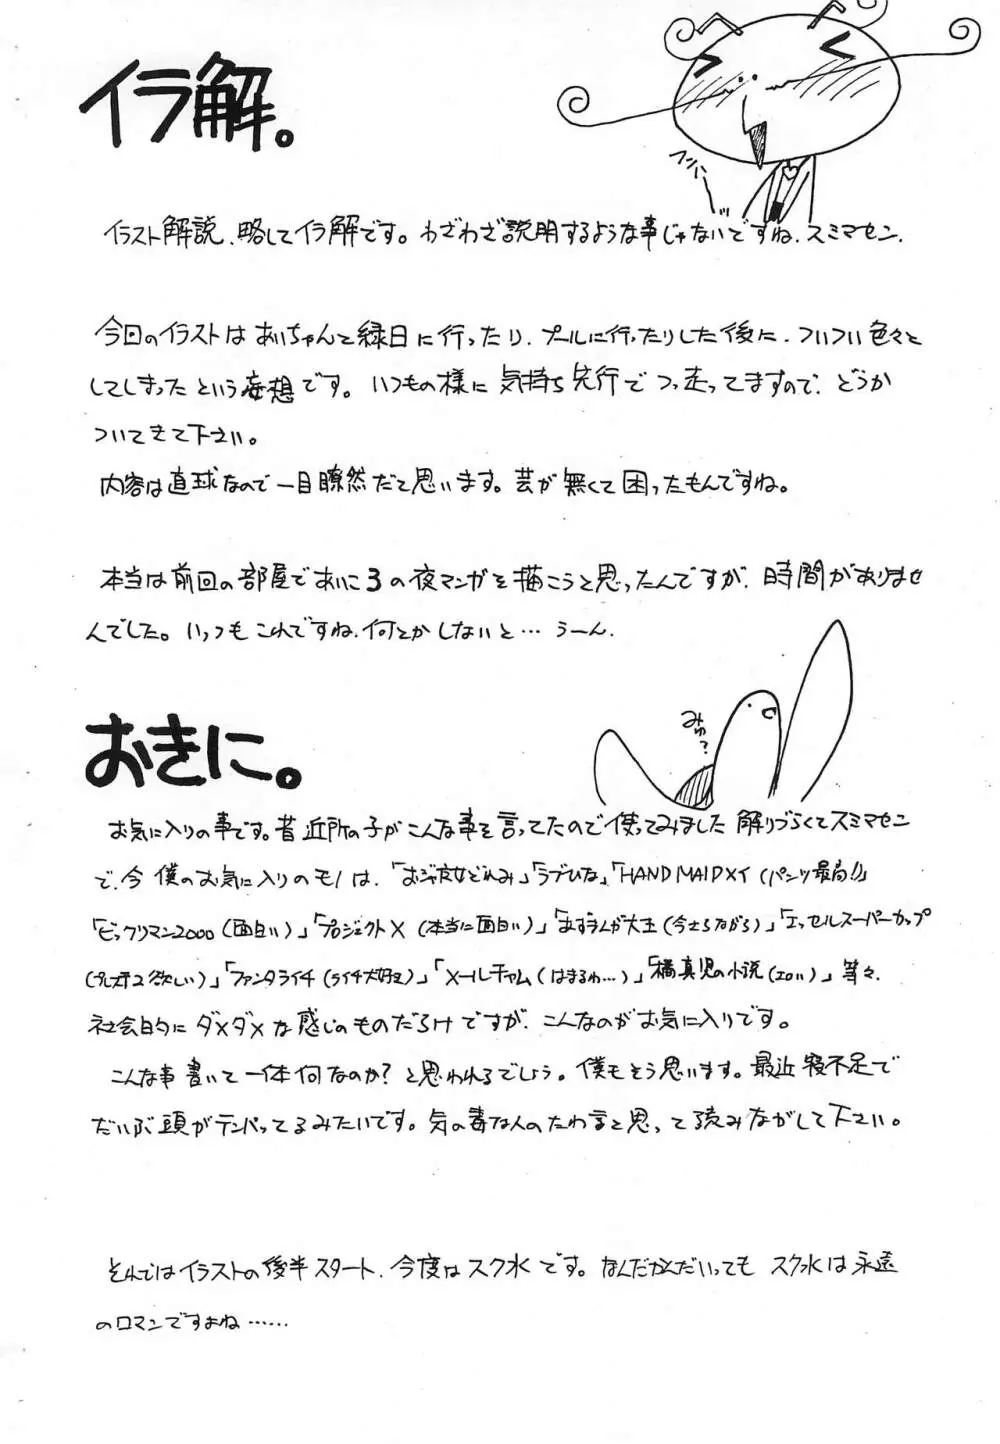 イラ解。
イラスト解説、略してイラ解です。わざわざ説明するような事じゃないですね、スミマセン。
今回のイラストはあいちゃんと縁日に行ったり、プールに行ったりした後に、ついつい色々と
してしまったという妄想です。いつもの様に気持ち先行でつっ走ってますので、どうか
ついてきて下さい。
内容は直球なので一目瞭然だと思います。芸が無くて困ったもんですね。
本当は前回の部屋であいこ3の夜マンガを描こうと思ったんですが、時間がありませ
んでした。いっつもこれですね、何とかしないと…うーん。
みゅ?
おきに。
お気に入りの事です。昔近所の子がこんな事を言ってたので使ってみました 解りづらくてスミマセン
で、今僕のお気に入りのモノは、「おジャ魔女どれみ」「ラブひな」「HAND MAIDメイ(パンツ最高!!)」
「ビックリマン2000(面白い)」「プロジェクトX(本当に面白い)」「あずまんが大王(今さらながら)」「エッセルスーパーカップ
(プレステ2欲しい)」「ファンタライチ(ライチ大好き)」「メールチャム(はまるわ…)」「橘真児の小説(エロい)」等々、
社会的にダメダメな感じのものだらけですが、こんなのがお気に入りです。
こんな事書いて一体何なのか?と思われるでしょう。僕もそう思います。最近寝不足で
だいぶ頭がテンパってるみたいです。気の毒な人のたわ言と思って読みながして下さい。
それではイラストの後半スタート、今度はスク水です。なんだかんだいっても スク水は永遠
のロマンですよね……